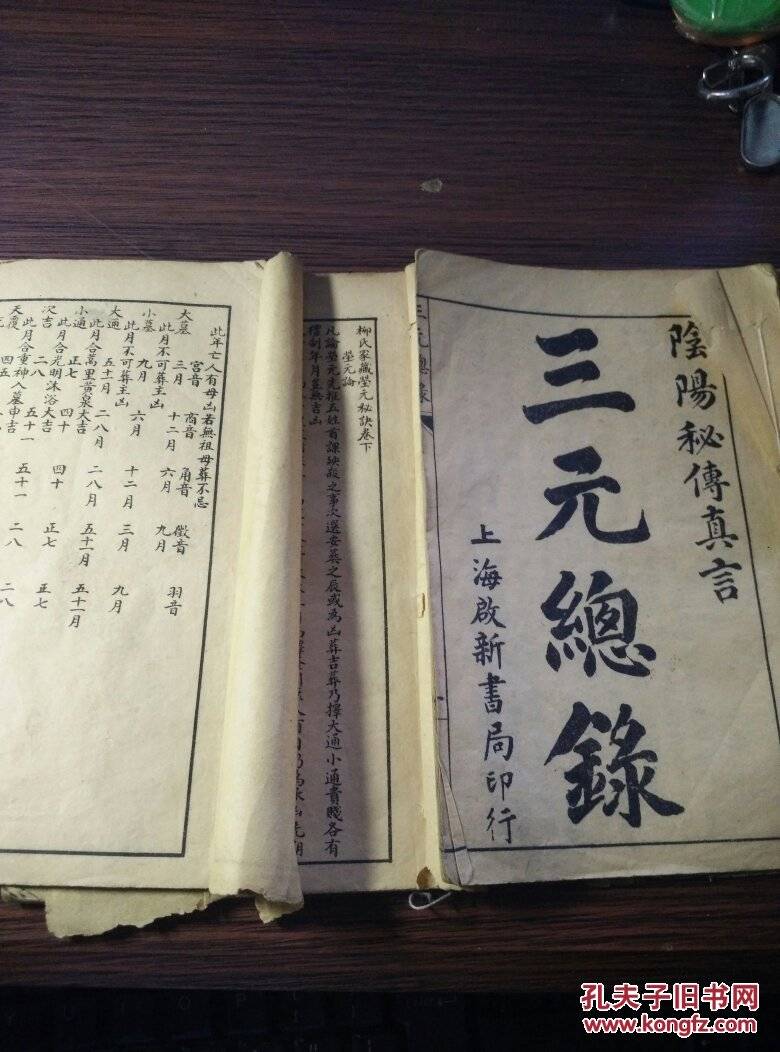 陰陽秘傳真言
三元總錄
上海啟新書局印行
三元總錄
柳氏家藏塋元秘訣卷下
塋元論
凡論塋元先推五姓首課殃殺之事次選安葬之辰或為凶葬吉葬乃擇大通小通貴賤各有
禮制年月豈無吉凶
此年亡人有母凶若無祖母葬不忌
宮音 商音 角音 徵音 羽音
大墓 三月 十二月 六月 九月
此月不可葬主凶
小墓 九月 六月 十二月 三月 九月
此月不可葬主凶
大通 五十一月 二八月 二八月 五十一月 五十一月
此月合萬里黃泉大吉
小通 正七 四十 四十 正七 正七
此月合光明沐浴大吉
次吉 二八 五十一 五十一 二八 二八
此月合重神入墓中吉
天覆 四五
孔夫子旧书网
www.kongfz.com